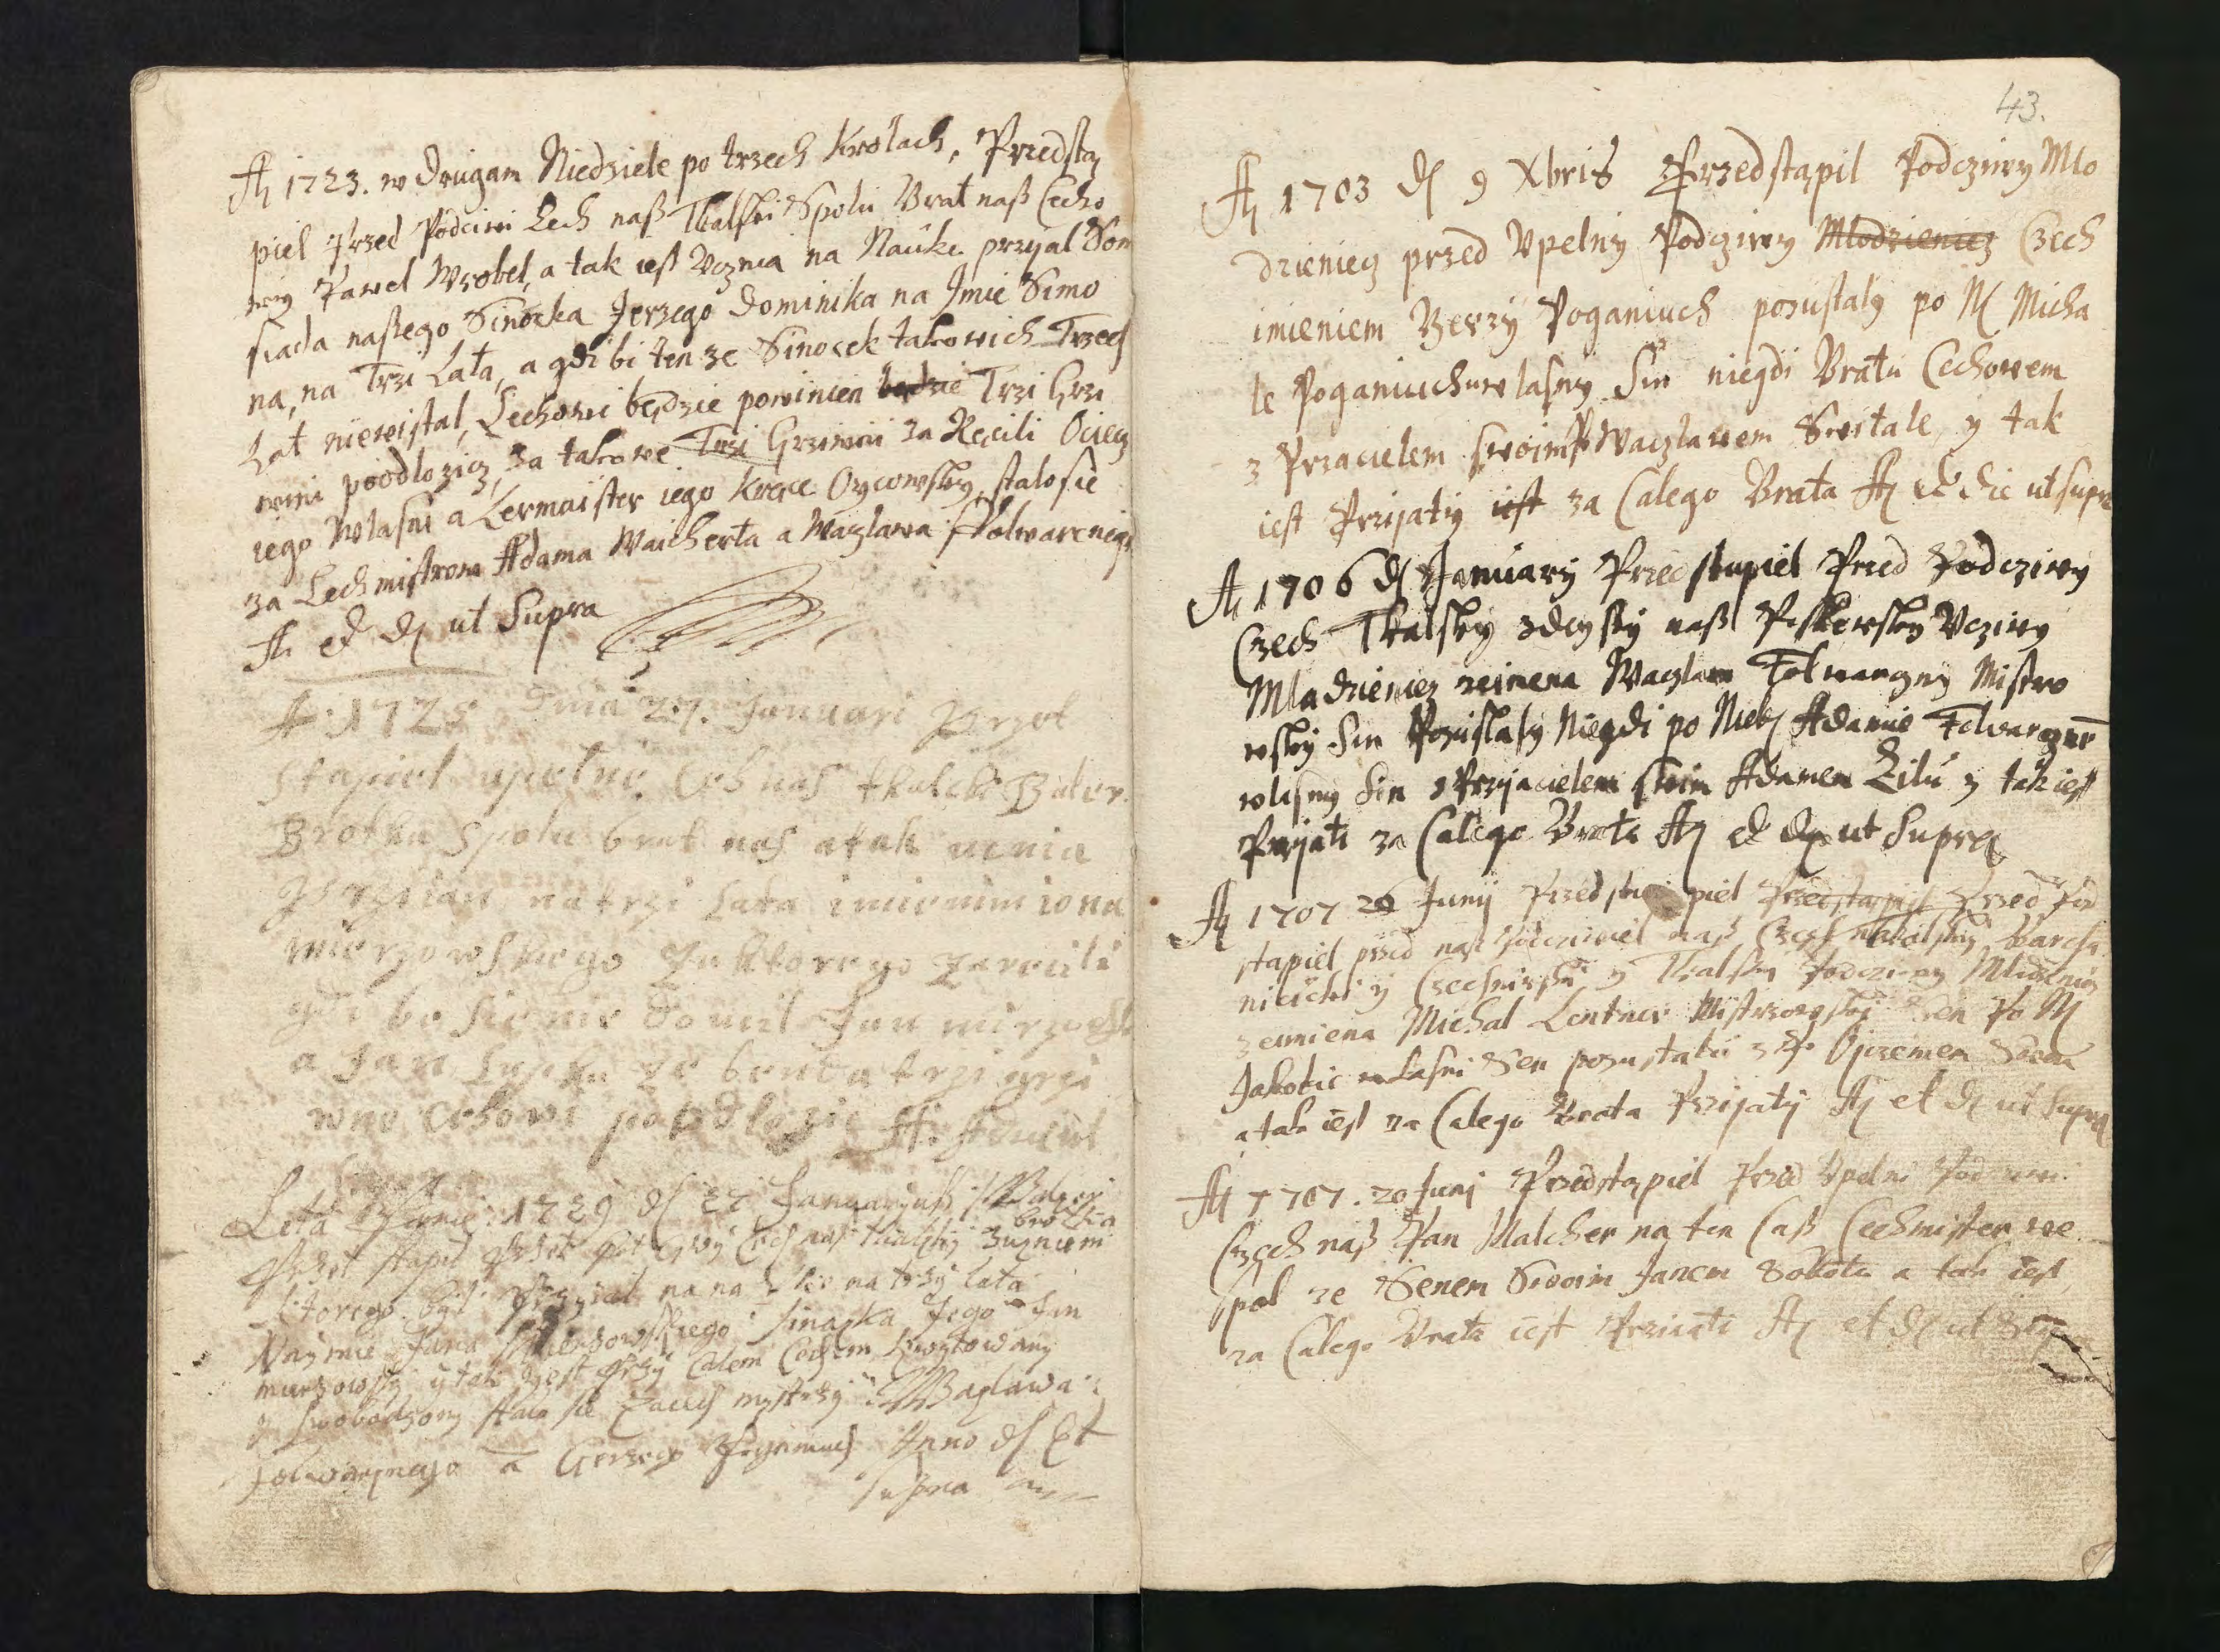 A 1723. w Drugam Niedziele po trzech Krolach, Przedstą
piel Przed Podciwi Cech naß Tkalski Spolu Brat naß Cecho
wy Pawel Wrobel, a tak iest Ucznia na Nauke przyal Som
siada naßego Sinocka Jerzego Dominika na Imie Simo
na, na Trzi Lata, a gdi bi ten ze Sinocek takowich Trzech
Lat niewistal, Cechowi będzie powinien będzie Trzi Grzi
wni poodlozicz, za takowe Trzi Grziwni za Ręcili Ociecz
iego Wlasni a Lermaister iego Kręce Oycowsky, stalo sie
za Cechmistrow Adama Waicherta a Waczlawa Folwarcnego
A ed d ut Supra
A 1725 Dnia 27. Januari Przot
stapiel upelne Ceh nas tkalcki
Brotka Spolu brat nas a tak ucnia
Przyian na trzi Lata imienim iona
mierzowskiego za ktorego zarecili
gdi bi sie nie doucil Jan
a Jan ze brata trzi grzi
wne cehowi poodlozic A.
Leta Panie 1729 d 27 Januaryuß Balcer
Brotka
Przet stapil Przet Cech naß tkalsky z uzniem
ktorego byl Przyial na na uke na trzy lata
Na ymie Jana Mierzowskiego sinaska Jego Jan
mierzowsky y tak gest Przy Calem Cechem kwytowany
y swobodzony stalo sie za cech mystrzy Waczlawa
Folwarznego a Gerzego Anno d Et
supra
43.
A 1703 d 9 Xbris Przedstąpil Podcziwy Mlo
dzieniecz przed Upelny Podcziwy Mlodzieniecz Czech
imieniem Jerzy Poganiuch pozustaly po N Micha
le Poganiuchu wlasny Sin niegdi Bratu Cechowem
z Przacielem swoim P Waczlawem Switale, y tak
iest Przijatiy iest za Calego Brata A ed die ut supra
A 1706 d January Przedstupiel Pred Podcziwy
Czech Tkalsky naß Ucziwy
Mladzieniecz zeimena Waczlaw Folwarczny Mistrzo
wsky Sin Pozustaly Niegdi po Neb Adamie Folwarczne
wlasny Sin s Przyacielem swim Adamem Zilu y tak iest
Przyati za Calego Brata A ed d ut Supra
A 1707 20 Juny Przedstu piel Przedstąpiel Przed Pod
stapiel przed naß naß Czech Barcha
nicski y y Tkalsky Podcziwy Mladzenicz
zeimena Michal Lentner Mistrzowsky Sen Po N
Jakobie wlasni Sen pozustali z P Ojczemem Swem
a tak iest za Calego Brata Przijaty A et d ut Supra
A 1707. 20 Junj Przedstąpiel Przed Upelni
Czech naß Pan Malcher na ten Caß Cechmister we
spol ze Senem Swoim Janem Sobota a tak iest
za Calego Brata iest Prziiati A et d ut Supra